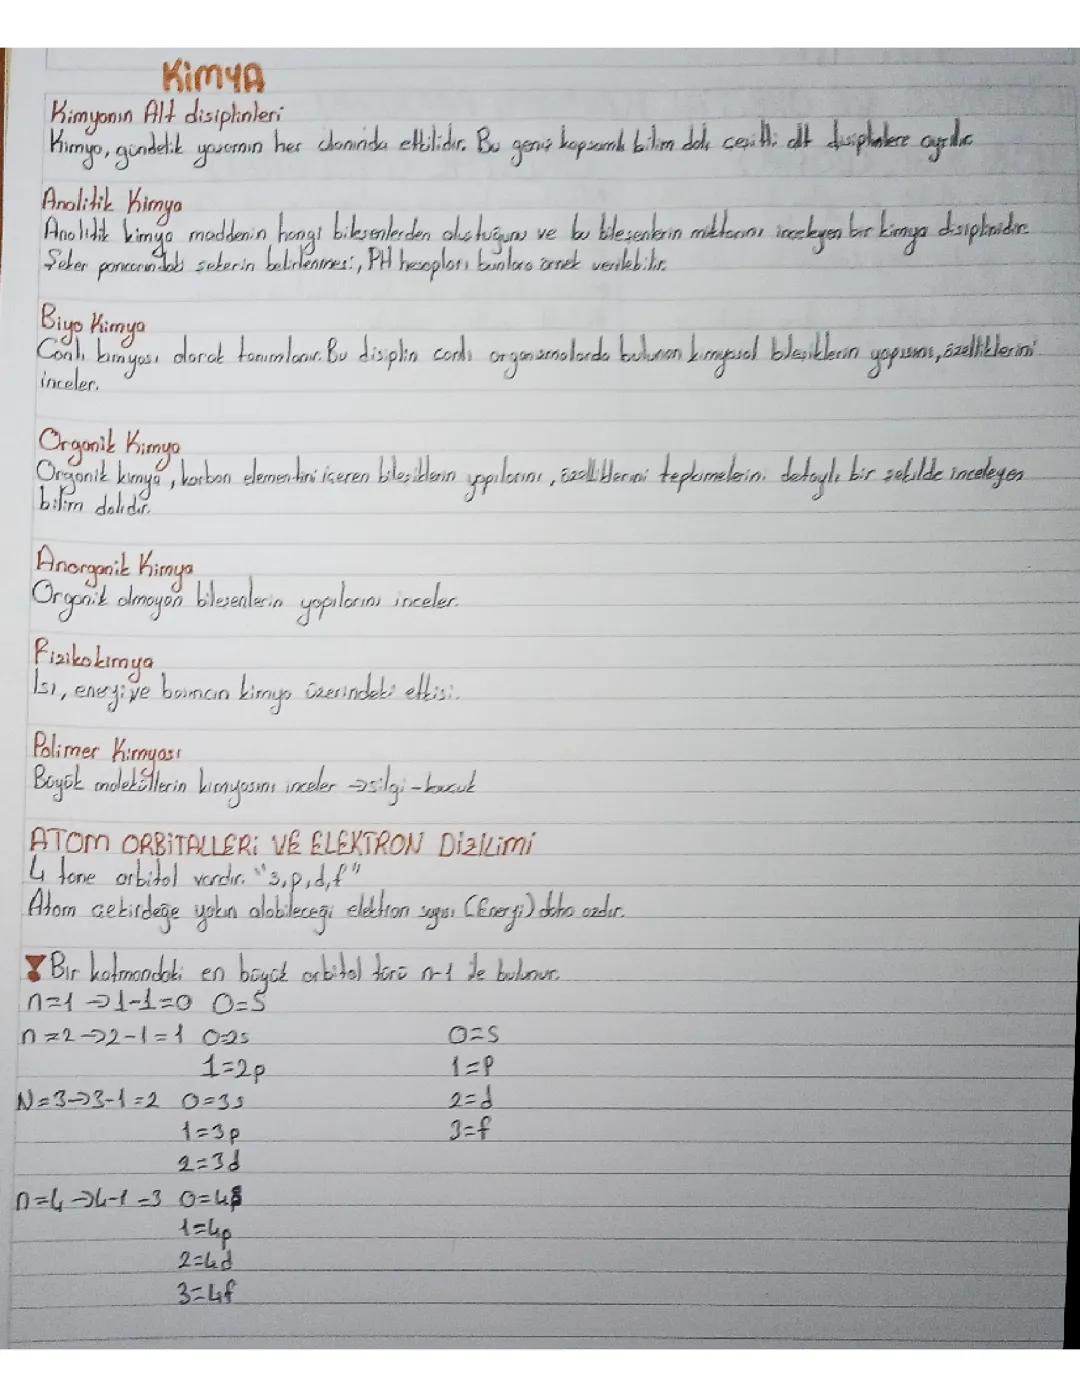 KİMYA
Kimyanın Alt disiplinleri
Kimya, gündelik yaşamın her alanında etkilidir. Bu geniş kapsamlı bilim dalı çeşitli alt disiplinlere ayrılır.
Analitik Kimya
Analitik kimya maddenin hangi bileşenlerden oluştuğunu ve bu bileşenlerin miktarını inceleyen bir kimya disiplinidir.
Şeker pancarındaki şekerin belirlenmesi, PH hesapları bunlara örnek verilebilir.
Biyo Kimya
Canlı kimyası olarak tanımlanır. Bu disiplin canlı organizmalarda bulunan kimyasal bileşiklerin yapısını, özelliklerini
inceler.
Organik Kimya
Organik kimya, karbon elementini içeren bileşiklerin yapılarını, özelliklerini tepkimelerini detaylı bir şekilde inceleyen
bilim dalıdır.
Anorganik Kimya
Organik olmayan bileşenlerin yapılarını inceler.
Fizikokimya
Isı, enerji ve basıncın kimya üzerindeki etkisi.
Polimer Kimyası
Büyük moleküllerin kimyasını inceler → silgi - kauçuk
ATOM ORBİTALLERİ VE ELEKTRON DİZİLİMİ
4 tane orbital vardır. "s,p,d,f"
Atom çekirdeğe yakın alabileceği elektron sayısı (Enerji) daha azdır.
Bir katmandaki en büyük orbital türü n-1 de bulunur.
n=1 → 1-1=0 0=S
n=2 → 2-1=1 0=2s 0=S
1=2p 1=P
N=3 → 3-1=2 0=3s 2=d
1=3p 3=f
2=3d
n=4 → 4-1=3 0=4s
1=4p
2=4d
3=4f